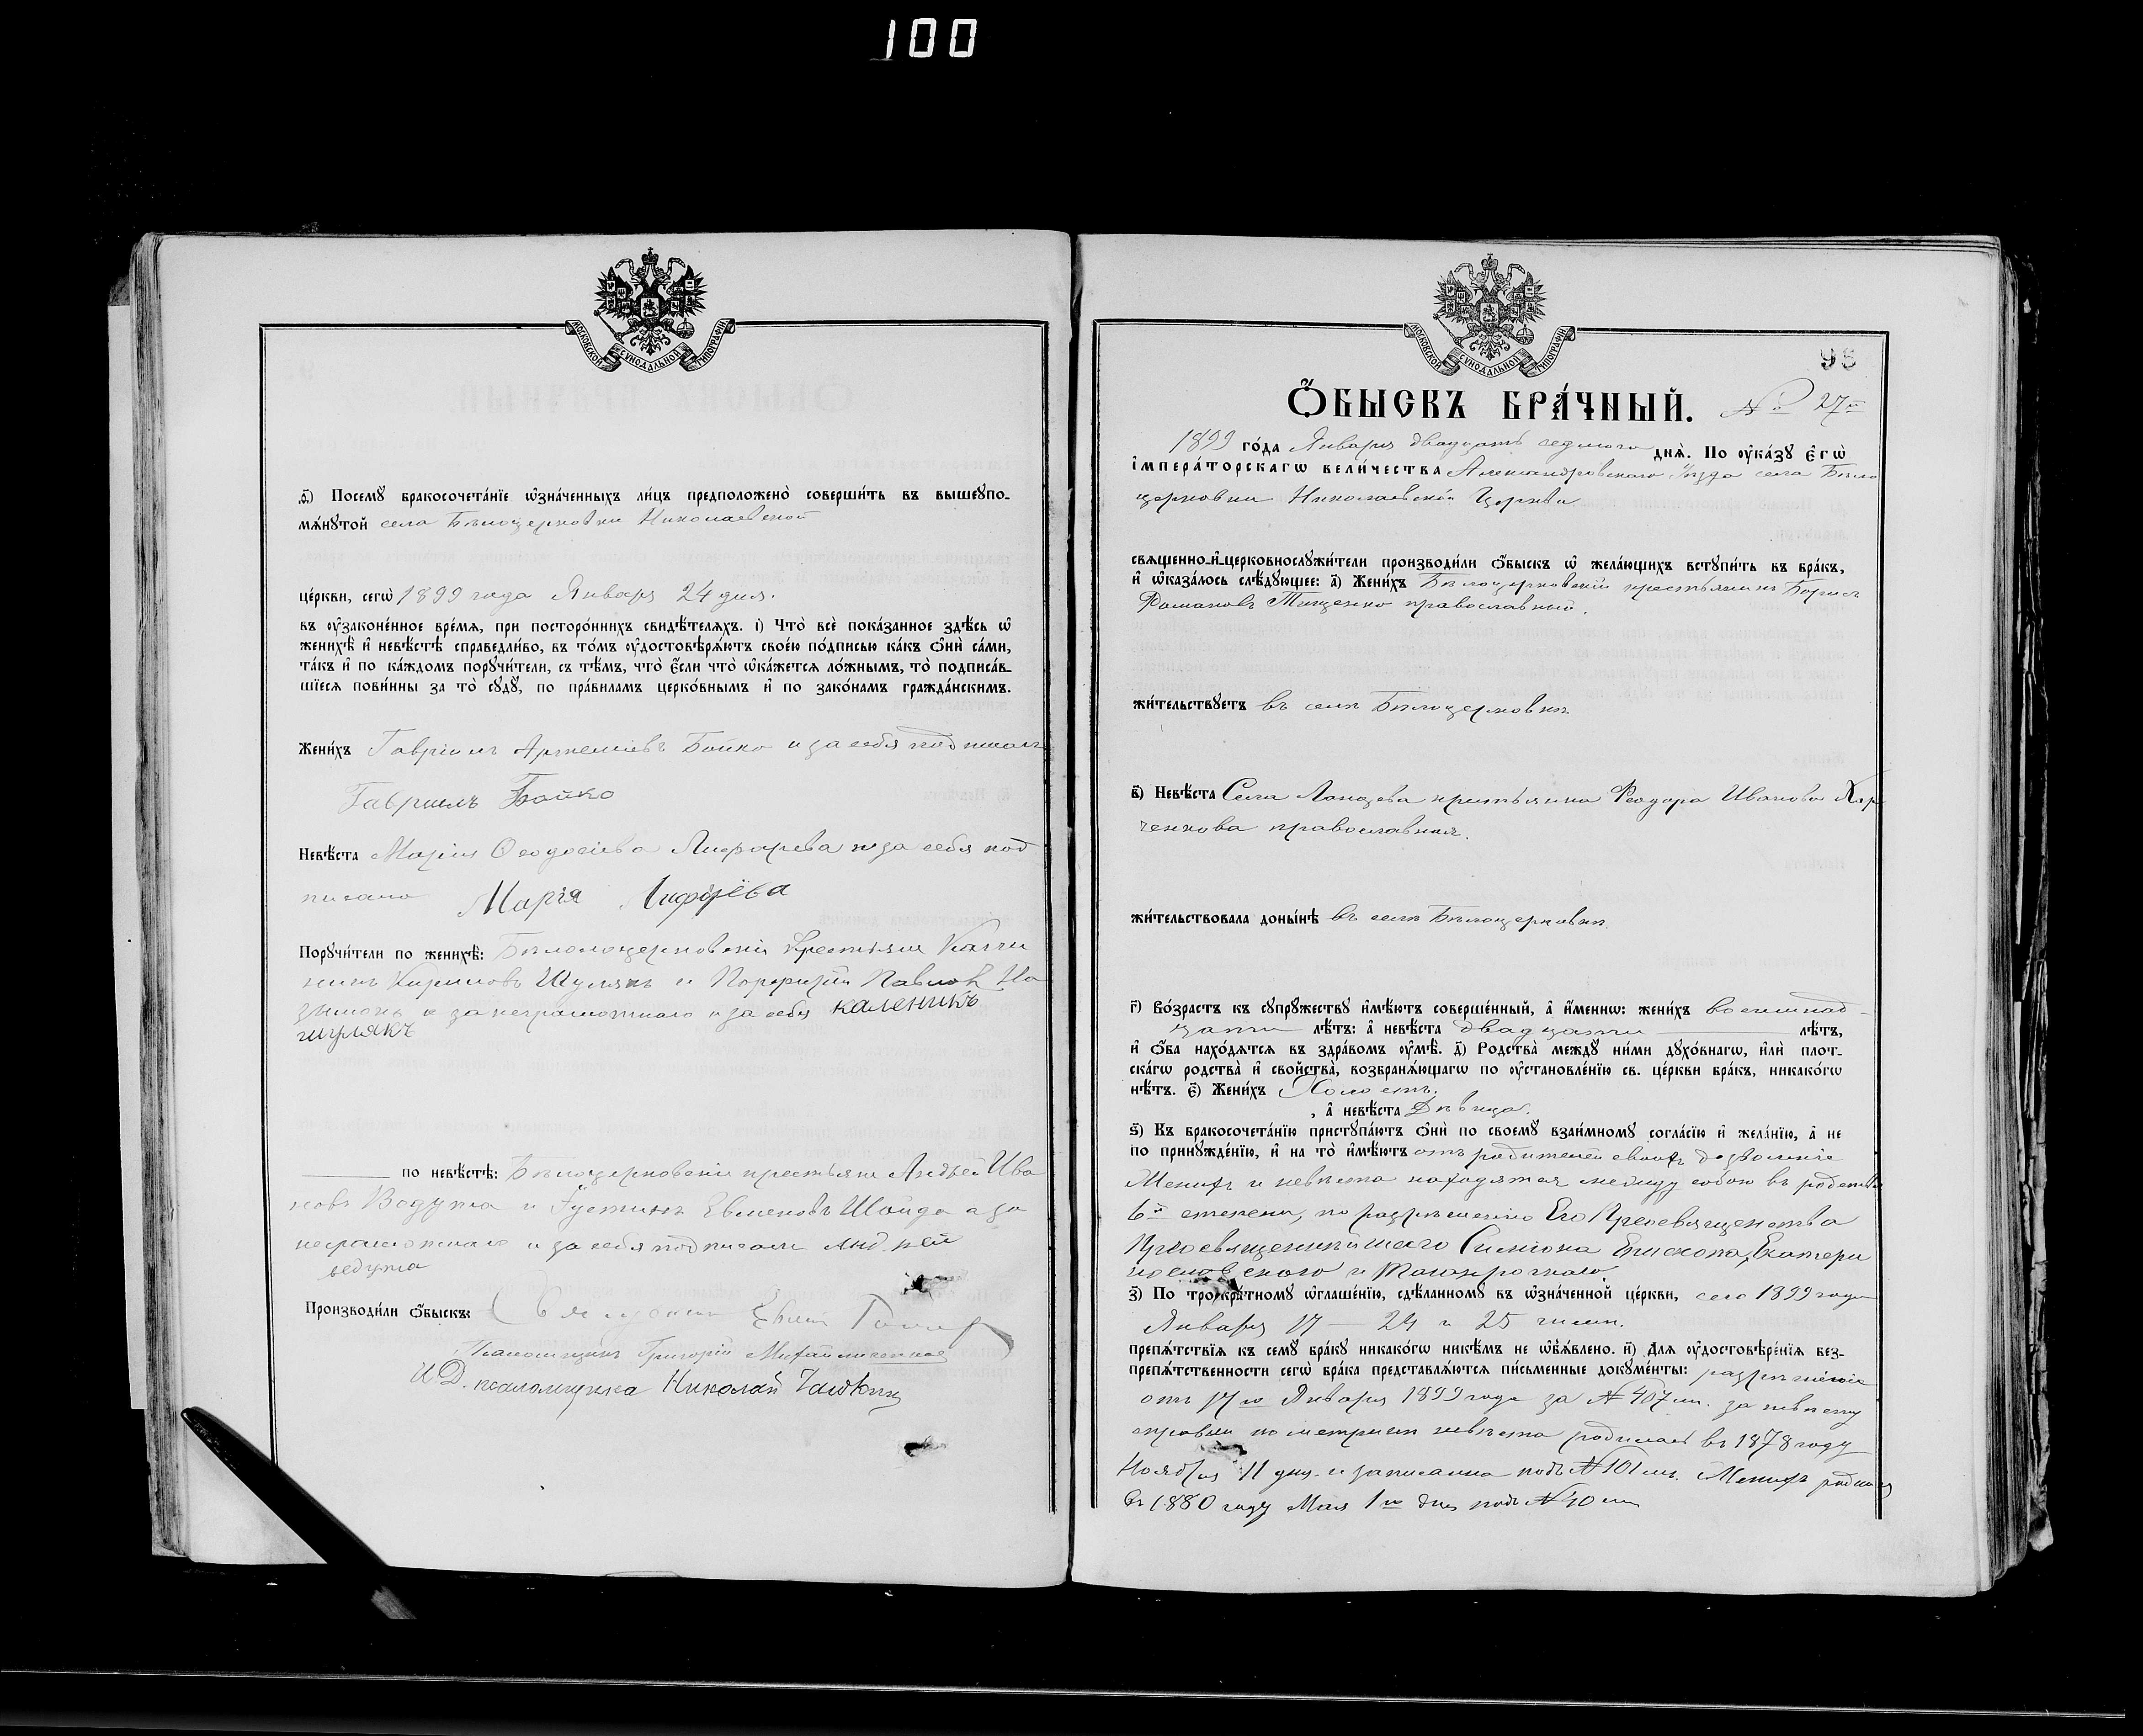 100
МОСКОВСКОЙ СѴНОДАЛЬНОЙ ТИПОГРАФІИ
ѳ҃) Посемꙋ̀ бракосочета́нїе ѡ҆зна́ченныхъ ли́цъ предположено̀ соверши́ть въ вышеꙋпо-
мѧ́нꙋтой села Бѣлоцерковки Николаевской
це́ркви, сегѡ̀ 1899 года Января 24 дня.
въ ᲂу҆зако́ненное вре́мѧ, при посторо́ннихъ свидѣ́телѧхъ. і҃) Что̀ всѐ пока́занное здѣ́сь ѡ҆
женихѣ̀ и҆ невѣ́стѣ справедли́во, въ то́мъ ᲂу҆достовѣрѧ́ютъ свое́ю по́дписью ка́къ ѻ҆нѝ са́ми,
та́къ и҆ по ка́ждомъ порꙋчи́тели, съ тѣ́мъ, что̀ є҆́сли что̀ ѡ҆ка́жетсѧ ло́жнымъ, то̀ подписа́в-
шїесѧ пови́нны за то̀ сꙋдꙋ̀, по пра́виламъ церко́внымъ и҆ по зако́намъ гражда́нскимъ.
Жени́хъ Гавріилъ Артеміевъ Бойко и за себя подписалъ
Гавриилъ Бойко
Невѣ́ста Марія Ѳеодосіева Лифарева и за себя под
писала Марія Лифарева
Порꙋчи́тели по женихѣ̀: Бѣлоцерковскіи крестьяне Калли
никъ Кириловъ Шулякъ и Порфирій Павловъ
и за неграмотнаго и за себя каленикъ
шулякъ
по невѣ́стѣ: Бѣлоцерковскіи крестьяне Андрей Ива
новъ Ведута и Іустинъ Евменовъ Шайда а за
неграмотнаго и за себя подписалъ Андрей
ведута
Производи́ли ѻ҆́быскъ: Священникъ
Псаломщикъ Григорій
И. Д. псаломщика Николай
МОСКОВСКОЙ СѴНОДАЛЬНОЙ ТИПОГРАФІИ
98
Ѻ҆БЫСКЪ БРА́ЧНЫЙ. № 27й
1899 го́да Января двадцать седмого днѧ̀. По ᲂу҆ка́зꙋ є҆гѡ̀
і҆мпера́торскагѡ вели́чества Александровскаго Уѣзда села Бѣло
церковки Николаевской Церкви
свѧщенно-и҆-церковнослꙋжи́тели производи́ли ѻ҆́быскъ ѡ҆ жела́ющихъ встꙋпи́ть въ бра́къ,
и҆ ѡ҆каза́лось слѣ́дꙋющее: а҃) Жени́хъ Бѣлоцерковскій крестьянинъ Борисъ
Романовъ Тищенко православный.
жи́тельствꙋетъ въ селѣ Бѣлоцерковкѣ
в҃) Невѣ́ста Села крестьянка Феодора Иванова Хар
ченкова православная.
жи́тельствовала доны́нѣ въ селѣ Бѣлоцерковкѣ.
г҃) Во́зрастъ къ сꙋпрꙋ́жествꙋ и҆мѣ́ютъ соверше́нный, а҆ и҆́меннѡ: жени́хъ восемнад-
цати лѣ́тъ: а҆ невѣ́ста двадцати лѣ́тъ,
и҆ ѻ҆́ба нахо́дѧтсѧ въ здра́вомъ ᲂу҆мѣ̀. д҃) Родства̀ междꙋ̀ ни́ми дꙋхо́внагѡ, и҆лѝ плот-
ска́гѡ родства̀ и҆ сво́йства̀, возбранѧ́ющагѡ по ᲂу҆становле́нїю св. це́ркви бра́къ, никако́гѡ
нѣ́тъ. є҃) Жени́хъ Холостъ.
, а҆ невѣ́ста Дѣвица.
ѕ҃) Къ бракосочета́нїю пристꙋпа́ютъ ѻ҆нѝ по своемꙋ̀ взаи́мномꙋ согла́сїю и҆ жела́нїю, а҆ не
по принꙋжде́нїю, и҆ на то̀ и҆мѣ́ютъ отъ родителей своихъ дозволеніе
Женихъ и невѣста находятся между собою въ родствѣ
6й степени, по разрѣшенію Его Преосвященства
Преосвященнѣйшаго Симеона Епископа Екатери
нославскаго и Таганрогскаго.
з҃) По трокра́тномꙋ ѡ҆глаше́нїю, сдѣ́ланномꙋ въ ѡ҆зна́ченной це́ркви, сего 1899 года
Января 17 — 24 и 25 числ.
препѧ́тствїѧ къ семꙋ̀ бра́кꙋ никако́гѡ никѣ́мъ не ѡ҆б̾ѧ́влено. и҃) Длѧ̀ ᲂу҆достовѣре́нїѧ без-
препѧ́тственности сегѡ̀ бра́ка представлѧ́ютсѧ пи́сьменные докꙋме́нты: разрѣшеніе
отъ 17го Января 1899 года за № 407мъ. за невѣсту
справка по метрикѣ невѣста родилась въ 1878 году
Ноября 11 дня и записанна подъ № 101мъ. Женихъ родился
въ 1880 году Мая 1го дня подъ № 40мъ